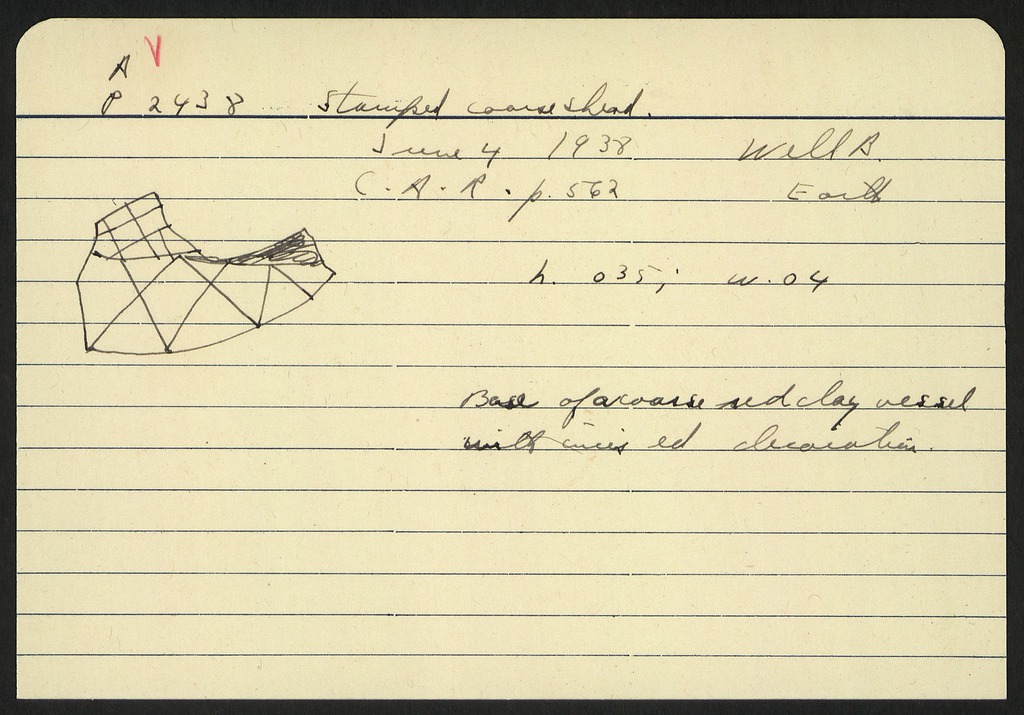 A V
P 2438 Stamped coarse sherd.
June 4 1938 Well A.
C.A.R. p. 562 Earth
h. 035; w. 04
Base of a coarse red clay vessel
with incised decoration.